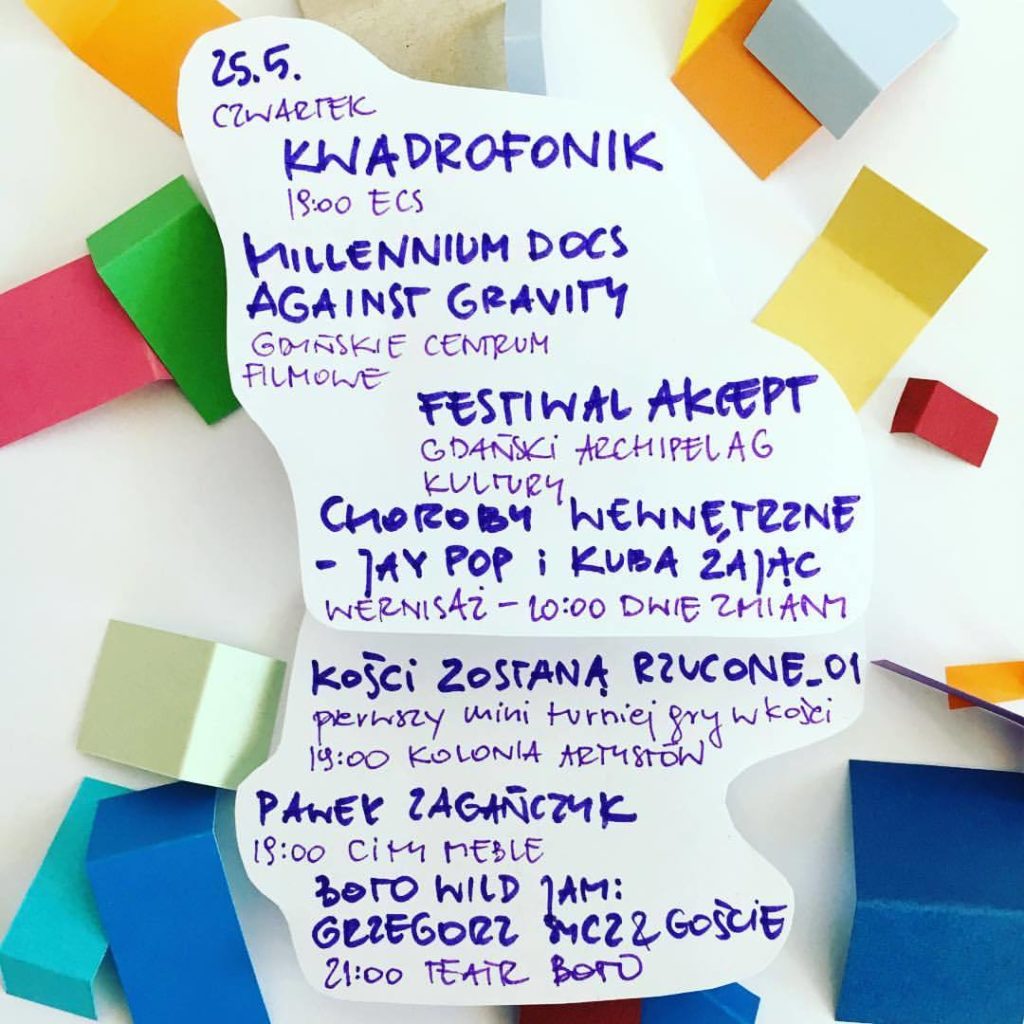 25.5.
CZWARTEK
KWADROFONIK
19:00 ECS
MILLENNIUM DOCS
AGAINST GRAVITY
GDAŃSKIE CENTRUM
FILMOWE
FESTIWAL AKCEPT
GDAŃSKI ARCHIPELAG
KULTURY
CHOROBY WEWNĘTRZNE
- JAY POP i KUBA ZAJĄC
WERNISAŻ - 20:00 DWIE ZMIANY
KOŚCI ZOSTANĄ RZUCONE_01
pierwszy mini turniej gry w kości
19:00 KOLONIA ARTYSTÓW
PAWEŁ ZAGAŃCZYK
19:00 CITY MEBLE
BOTO WILD JAM:
GRZEGORZ & GOŚCIE
21:00 TEATR BOTO